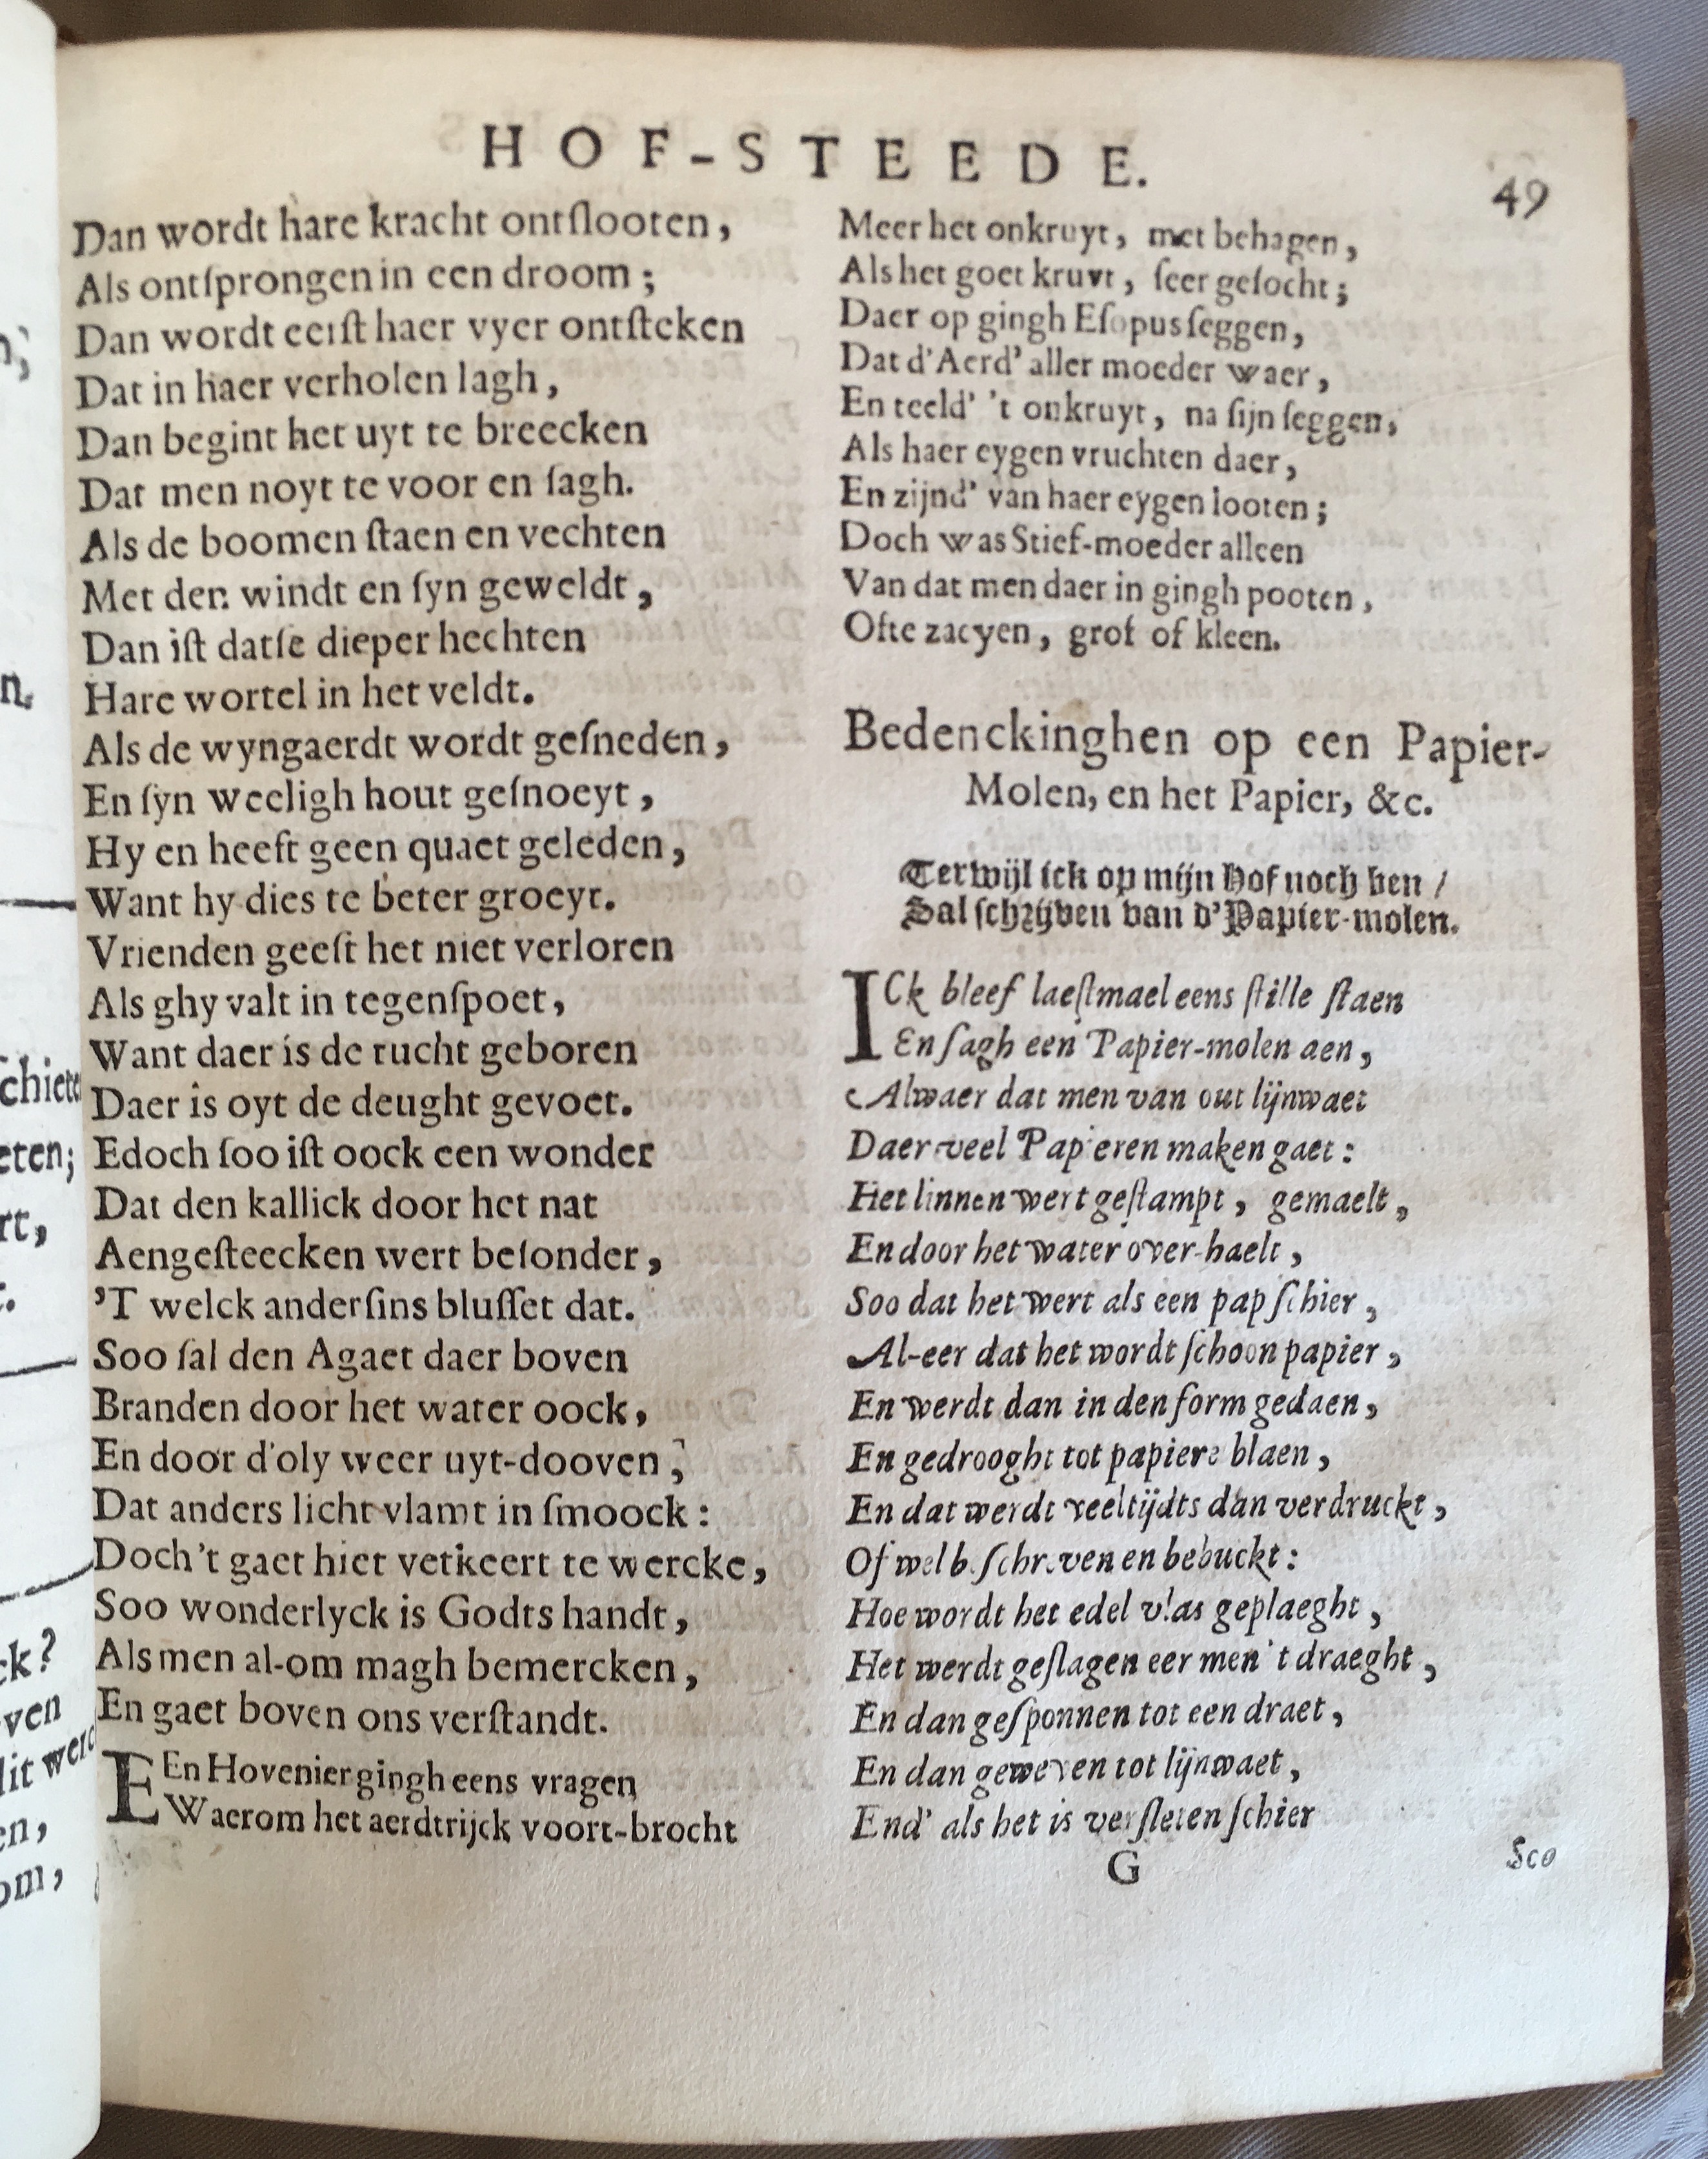 HOF-STEEDE.
49
Dan wordt hare kracht ontſlooten,
Als ontſprongen in een droom;
Dan wordt eerſt haer vyer ontſteken
Dat in haer verholen lagh,
Dan begint het uyt te breecken
Dat men noyt te voor en ſagh.
Als de boomen ſtaen en vechten
Met den windt en ſyn geweldt,
Dan iſt datſe dieper hechten
Hare wortel in het veldt.
Als de wyngaerdt wordt geſneden,
En ſyn weeligh hout geſnoeyt,
Hy en heeft geen quaet geleden,
Want hy dies te beter groeyt.
Vrienden geeft het niet verloren
Als ghy valt in tegenſpoet,
Want daer is de rucht geboren
Daer is oyt de deught gevoet.
Edoch ſoo iſt oock een wonder
Dat den kallick door het nat
Aengeſteecken wert beſonder,
'T welck anderſins bluſſet dat.
Soo ſal den Agaet daer boven
Branden door het water oock,
En door d'oly weer uyt-dooven,
Dat anders licht vlamt in ſmoock:
Doch 't gaet hier verkeert te wercke,
Soo wonderlyck is Godts handt,
Als men al-om magh bemercken,
En gaet boven ons verſtandt.
EEn Hovenier gingh eens vragen
Waerom het aerdtrijck voort-brocht
Meer het onkruyt, met behagen,
Als het goet kruyt, ſeer geſocht;
Daer op gingh Eſopus ſeggen,
Dat d'Aerd' aller moeder waer,
En teeld' 't onkruyt, na ſijn ſeggen,
Als haer eygen vruchten daer,
En zijnd' van haer eygen looten;
Doch was Stief-moeder alleen
Van dat men daer in gingh pooten,
Ofte zaeyen, grof of kleen.
Bedenckinghen op een Papier-
Molen, en het Papier, &c.
Terwijl ick op mijn Hof noch ben /
Sal ſchrijven van d'Papier-molen.
ICk bleef laeſtmael eens ſtille ſtaen
En ſagh een Papier-molen aen,
Alwaer dat men van out lijnwaet
Daer veel Papieren maken gaet:
Het linnen wert geſtampt, gemaelt,
En door het water over-haelt,
Soo dat het wert als een pap ſchier,
Al-eer dat het wordt ſchoon papier,
En werdt dan in den form gedaen,
En gedrooght tot papiere blaen,
En dat werdt veeltijdts dan verdruckt,
Of wel b.ſchreven en bebuckt:
Hoe wordt het edel vlas geplaeght,
Het werdt geſlagen eer men 't draeght,
En dan geſponnen tot een draet,
En dan geweven tot lijnwaet,
End' als het is verſleten ſchier
G
Soo